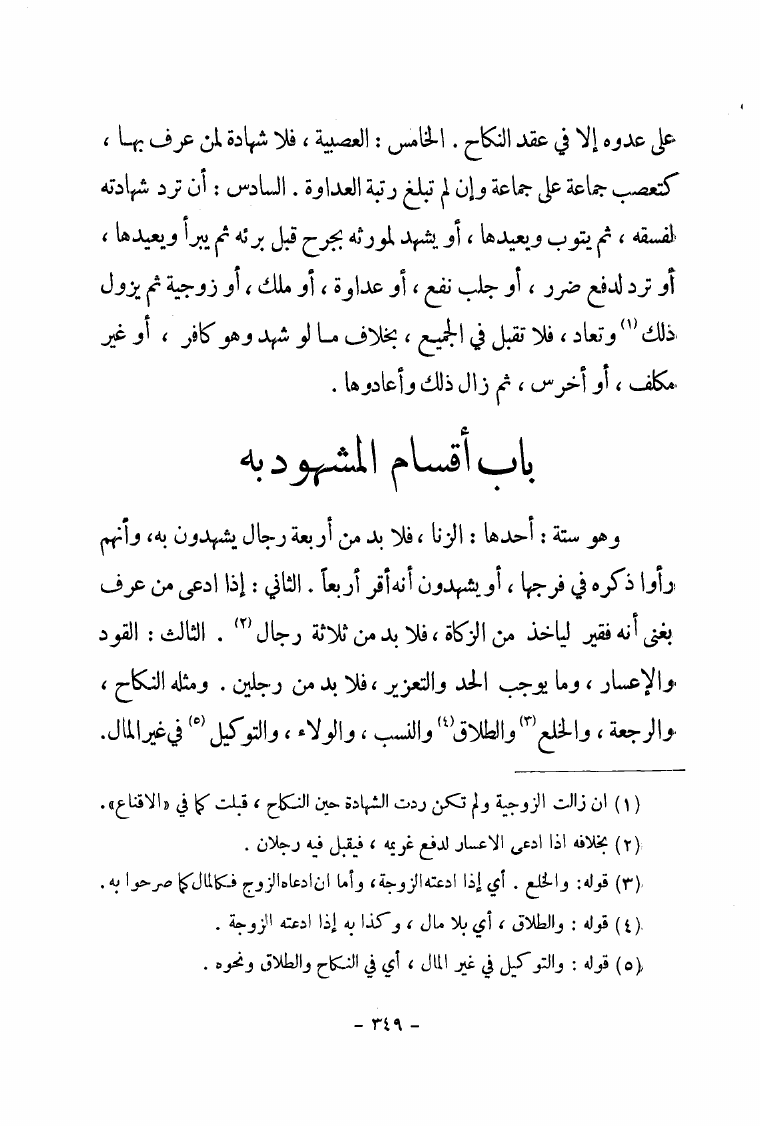 على عدوه إلا في عقد النكاح . الخامس : العصبية ، فلا شهادة لمن عرف بها ،
كتعصب جماعة على جماعة وإن لم تبلغ رتبة العداوة . السادس : أن ترد شهادته
لفسقه ، ثم يتوب ويعيدها ، أو يشهد لمورثه بجرح قبل برئه ثم يبرأ ويعيدها ،
أو ترد لدفع ضرر ، أو جلب نفع ، أو عداوة ، أو ملك ، أو زوجية ثم يزول
ذلك (١) وتعاد ، فلا تقبل في الجميع ، بخلاف ما لو شهد وهو كافر ، أو غير
مكلف ، أو أخرس ، ثم زال ذلك وأعادوها .
باب أقسام المشهود به
وهو ستة : أحدها : الزنا ، فلا بد من أربعة رجال يشهدون به، وأنهم
رأوا ذكره في فرجها ، أو يشهدون أنه أقر أربعاً . الثاني : إذا ادعى من عرف
بغنى أنه فقير لياخذ من الزكاة ، فلا بد من ثلاثة رجال (٢) . الثالث : القود
والإعسار ، وما يوجب الحد والتعزير ، فلا بد من رجلين . ومثله النكاح ،
والرجعة ، والخلع (٣) والطلاق (٤) والنسب ، والولاء ، والتوكيل (٥) في غير المال.
(١) ان زالت الزوجية ولم تكن ردت الشهادة حين النكاح ، قبلت كما في «الاقناع».
(٢) بخلافه اذا ادعى الاعسار لدفع غريمه ، فيقبل فيه رجلان .
(٣) قوله: والخلع . أي إذا ادعته الزوجة، وأما ان ادعاه الزوج فكالمال كما صرحوا به .
(٤) قوله : والطلاق ، أي بلا مال ، وكذا به إذا ادعته الزوجة .
(٥) قوله : والتوكيل في غير المال ، أي في النكاح والطلاق ونحوه .
- ٣٤٩ -